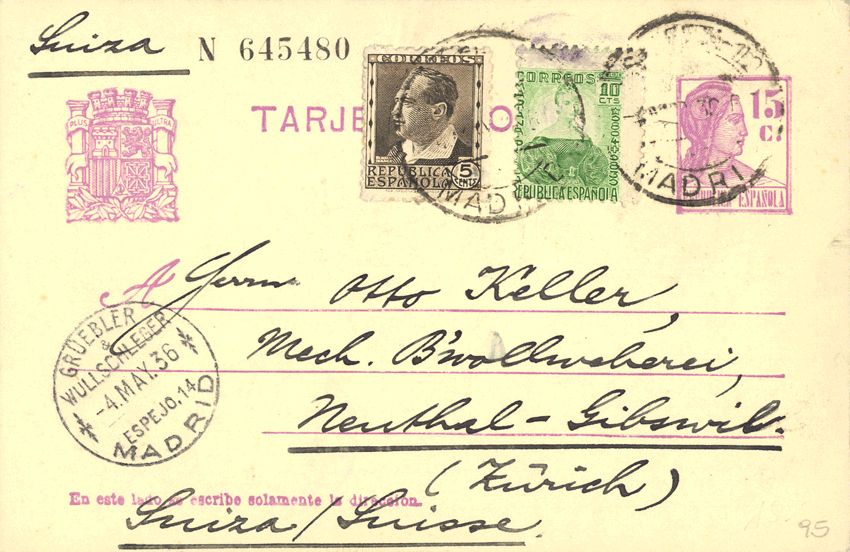 Suiza
N 645480
PLUS ULTRA
TARJE
O
CORREOS
REPÚBLICA
ESPAÑOLA
5
CENTS
CORREOS
10
CTS
REPUBLICA ESPAÑOLA
MADRID
MADRID
15
Cs
ESPAÑOLA
A Herrn Otto Keller,
Mech. B'wollweberei,
Neuthal - Gibswil.
(Zürich)
Suiza / Suisse.
GRÜEBLER
&
WULLSCHLEGER
-4.MAY.36
ESPEJO,14
MADRID
En este lado se escribe solamente la dirección.
95